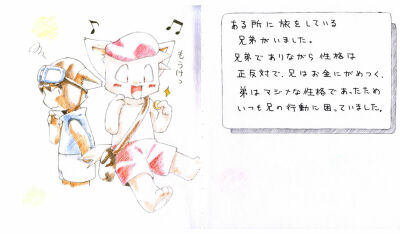 もうけっ
ある所に旅をしている
兄弟がいました。
兄弟でありながら性格は
正反対で、兄はお金にがめつく、
弟はマジメな性格であったため
いつも兄の行動に困っていました。